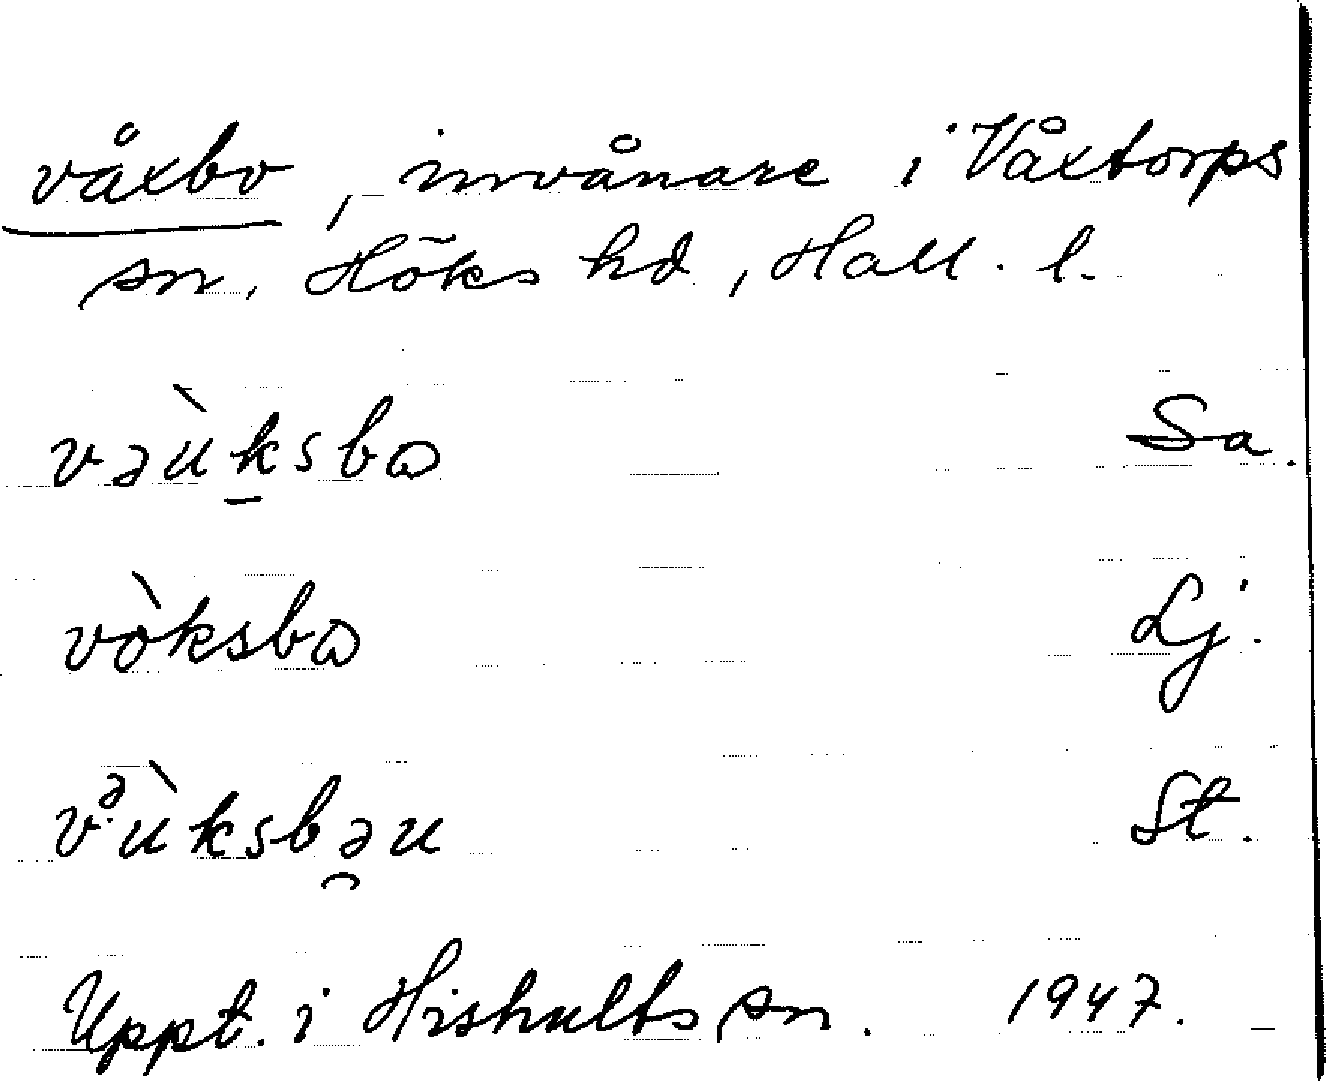 våxbo, invånare i Våxtorps
sn, Höks hd, Hall. l.
vəùksbɷ Sa.
vòksbɷ Lj.
vᵊùksbəu St.
Uppt. i Hishults sn. 1947.